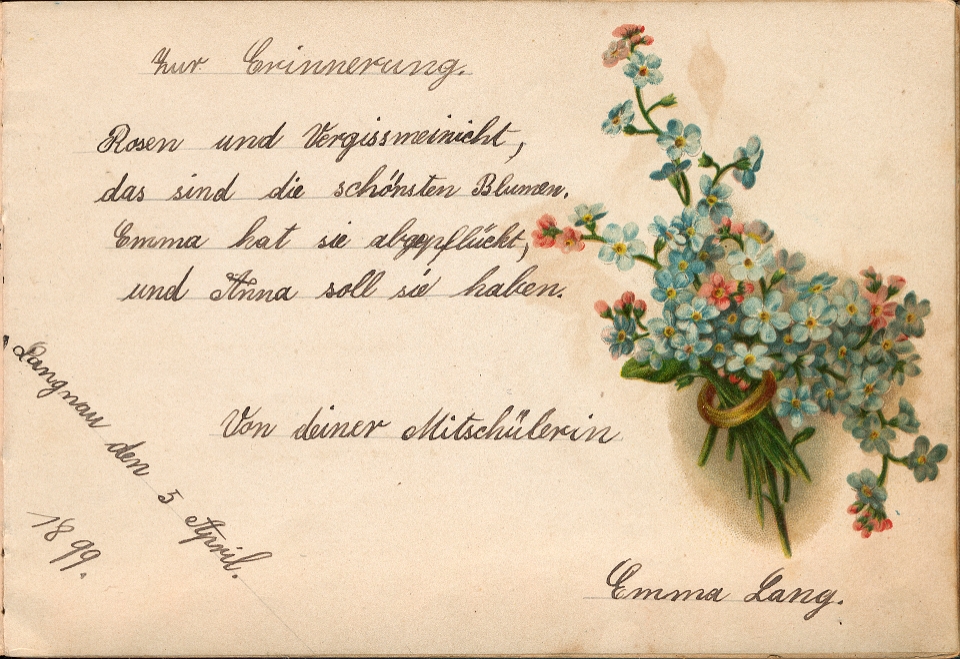 Zur Erinnerung.
Rosen und Vergissmeinicht,
das sind die schönsten Blumen.
Emma hat sie abgepflückt,
und Anna soll sie haben.
Von deiner Mitschülerin
Emma Lang.
Langnau den 5 April.
1899.